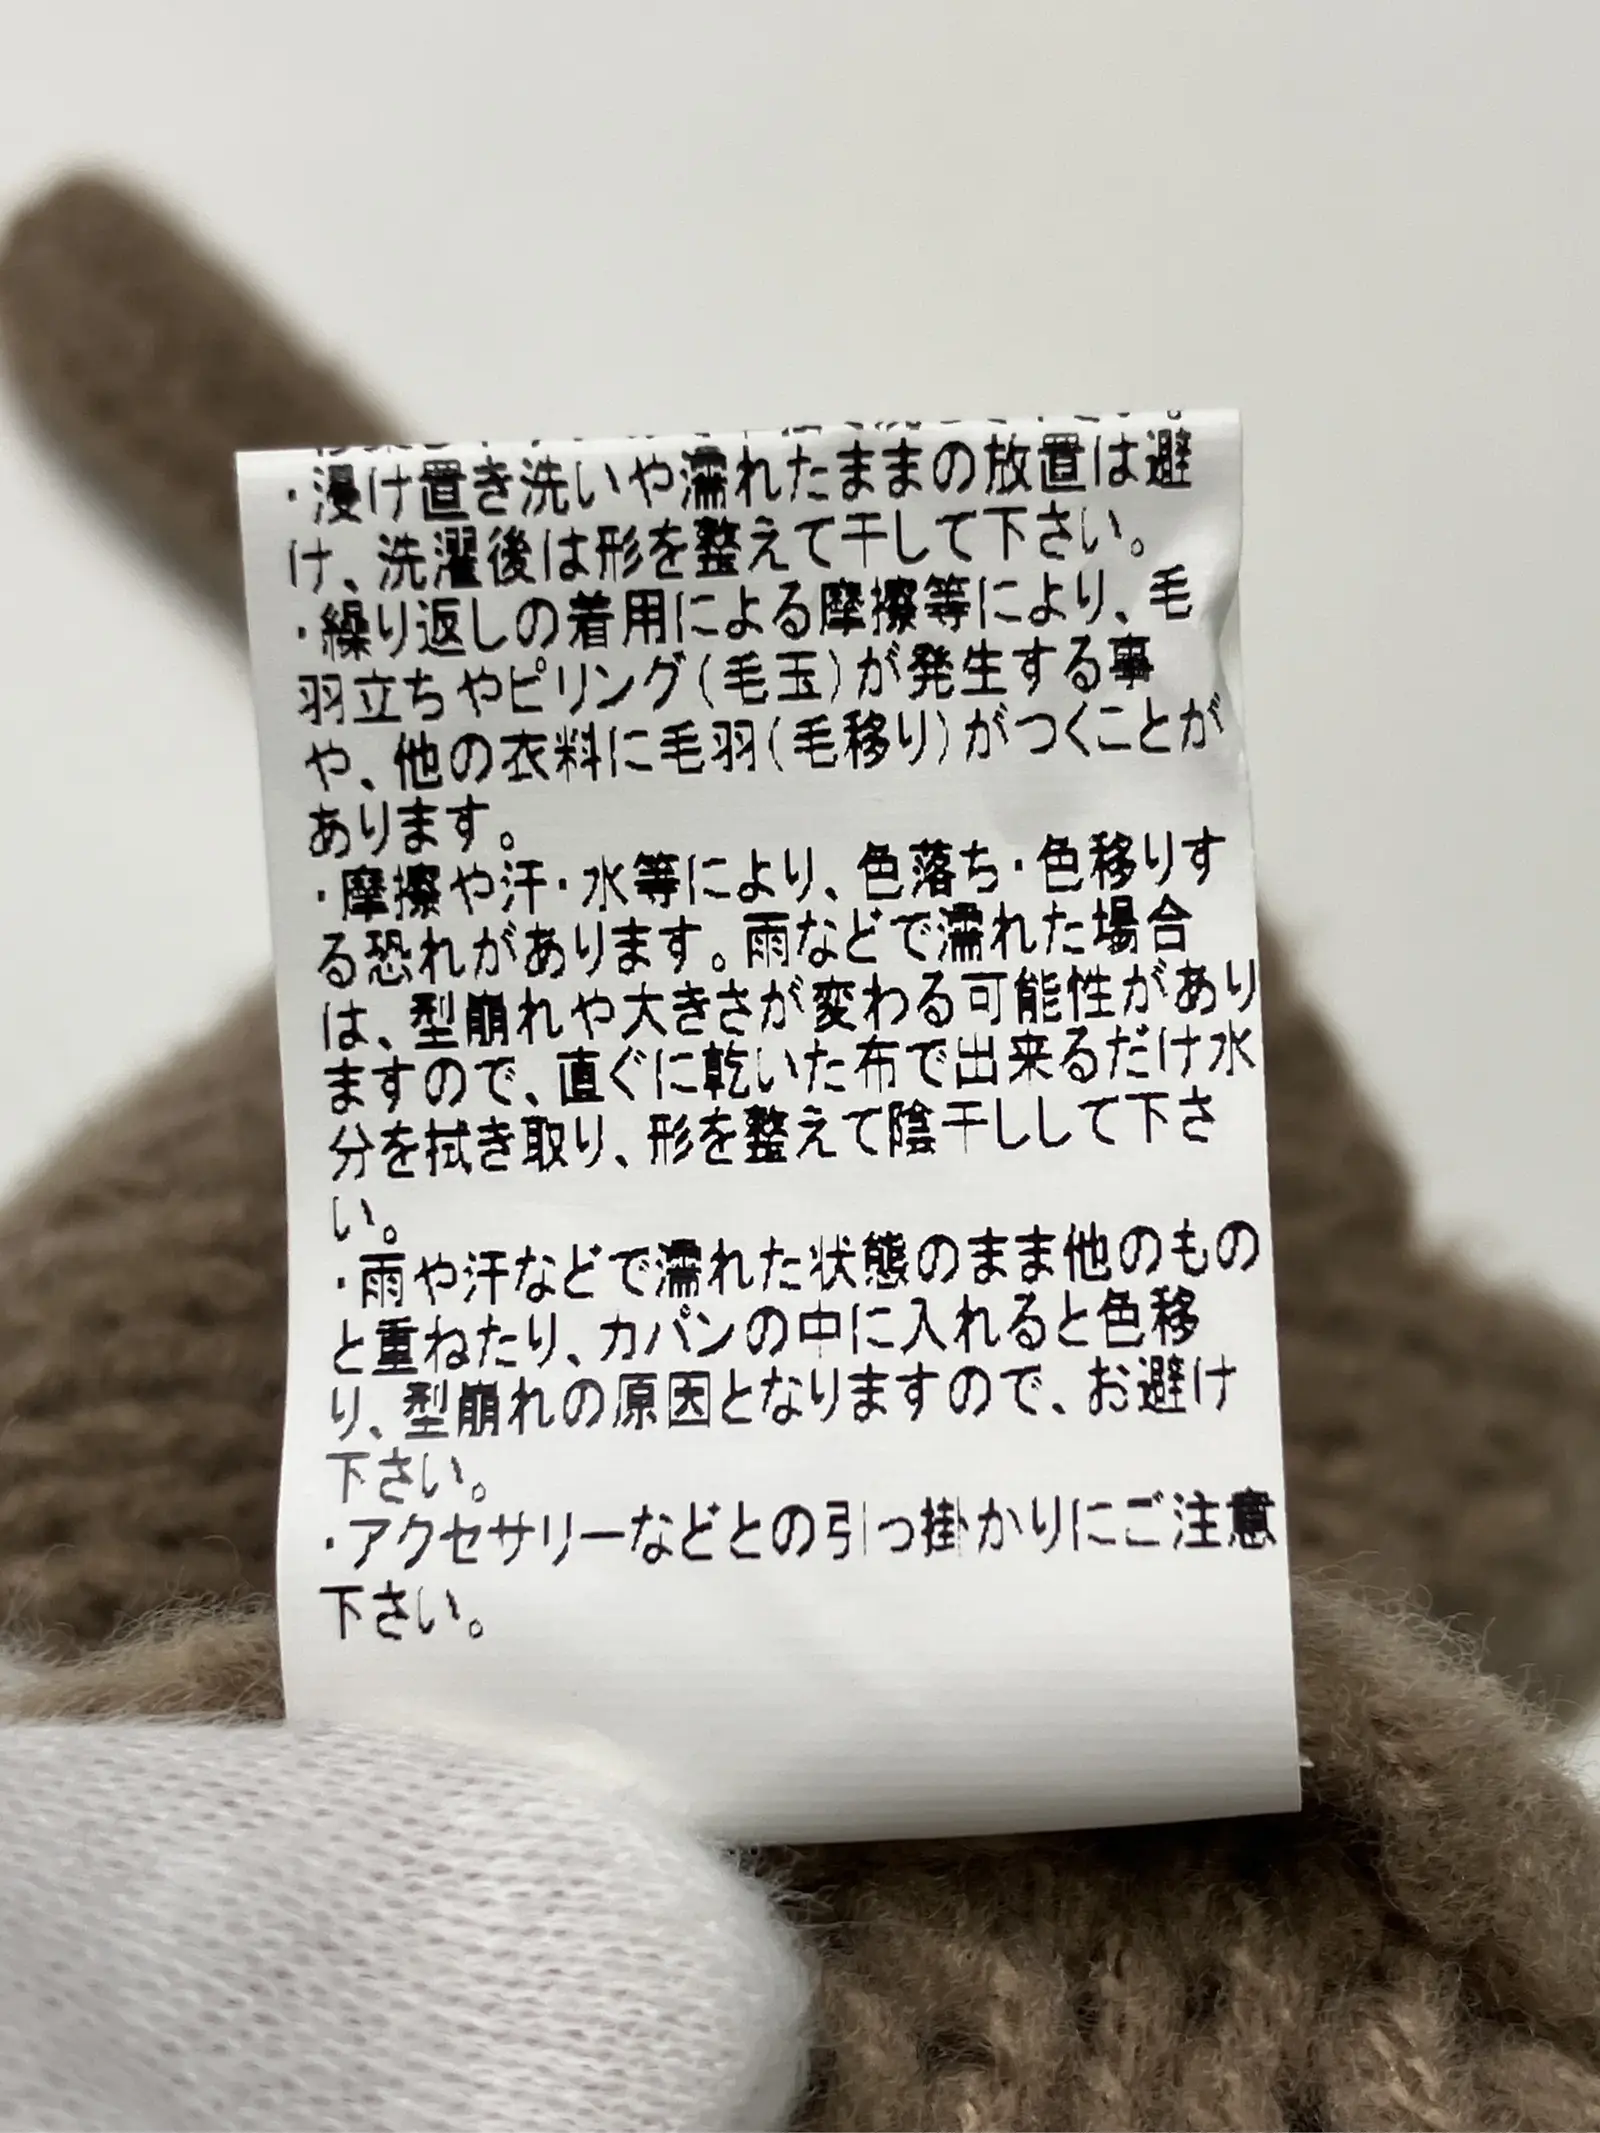 ・浸け置き洗いや濡れたままの放置は避
け、洗濯後は形を整えて干して下さい。
・繰り返しの着用による摩擦等により、毛
羽立ちやピリング(毛玉)が発生する事
や、他の衣料に毛羽(毛移り)がつくことが
あります。
・摩擦や汗・水等により、色落ち・色移りす
る恐れがあります。雨などで濡れた場合
は、型崩れや大きさが変わる可能性があり
ますので、直ぐに乾いた布で出来るだけ水
分を拭き取り、形を整えて陰干しして下さ
い。
・雨や汗などで濡れた状態のまま他のもの
と重ねたり、カバンの中に入れると色移
り、型崩れの原因となりますので、お避け
下さい。
・アクセサリーなどとの引っ掛かりにご注意
下さい。